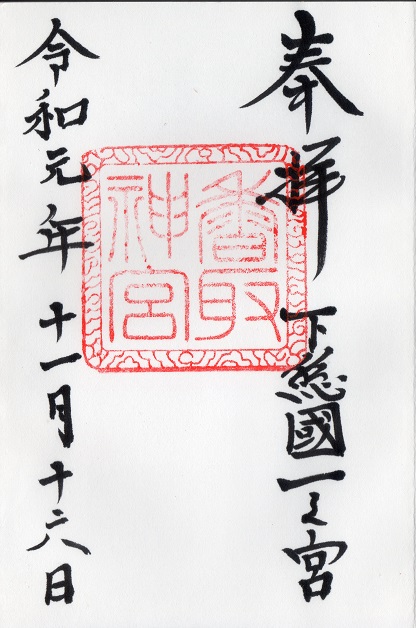 奉拝 下総國一之宮
香取
神宮
令和元年 十一月十六日